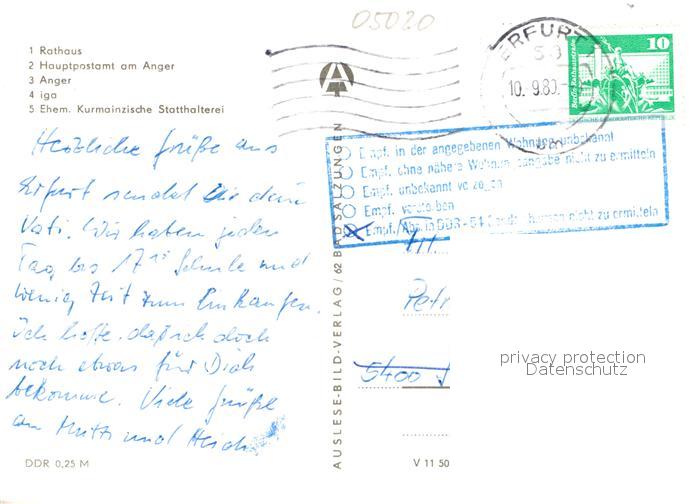 05020
1 Rathaus
2 Hauptpostamt am Anger
3 Anger
4 iga
5 Ehem. Kurmainzische Statthalterei
ERFURT
10.-9.80.
10
Empf. in der angegebenen Wohnung unbekannt
Empf. ohne nähere Wohnungsangabe nicht zu ermitteln
Empf. unbekannt verzogen
Empf. verstorben
Empf./Abs. in DDR - nicht zu ermitteln
Herzliche Grüße aus
Erfurt sendet Dir dein
Vati. Wir haben jeden
Tag bis 17 Schule und
wenig Zeit zum Einkaufen.
Ich hoffe, daß ich doch
noch etwas für Dich
bekomme. Viele Grüße
an Mutti und
5400
AUSLESE-BILD-VERLAG / 62 BAD SALZUNGEN
privacy protection
Datenschutz
DDR 0,25 M
V 11 50